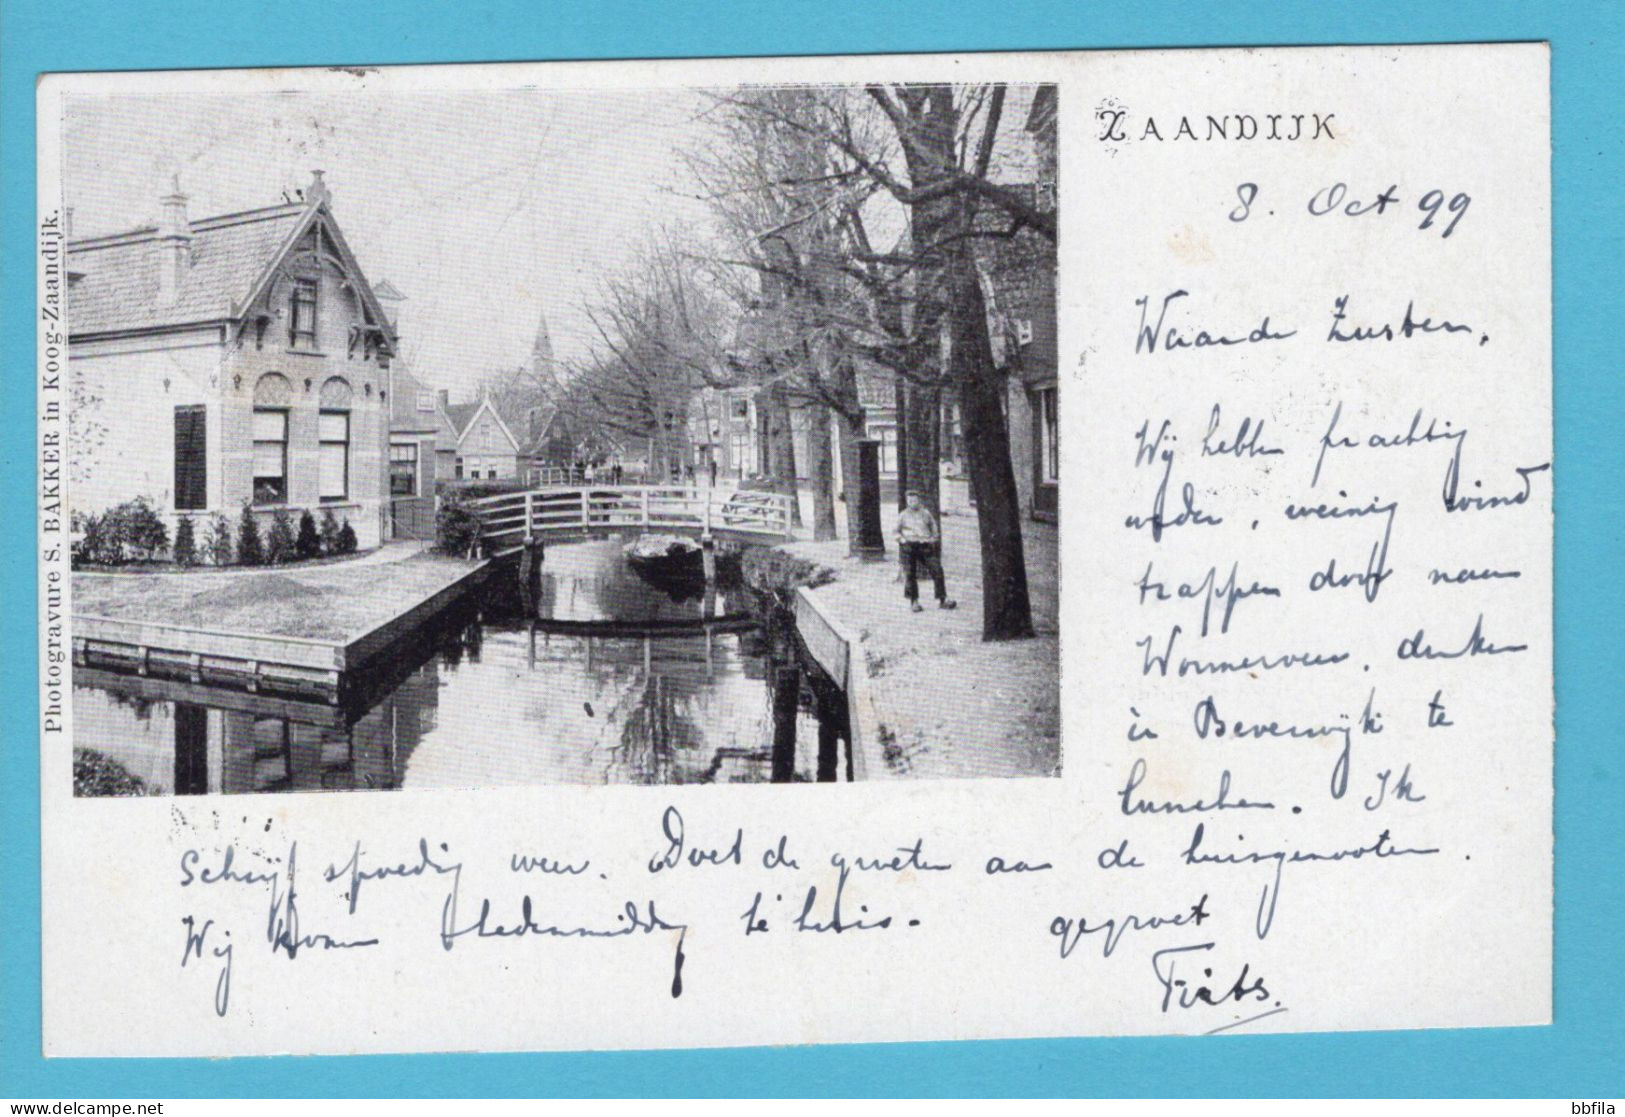 ZAANDIJK
8. Oct 99
Waarde Zusten,
Wij hebben prachtig
weder, weinig wind
trappen door naar
Wormerveer, denken
in Beverwijk te
lunchen. Ik
Schrijf spoedig weer. Doet de groeten aan de huisgenooten.
Wij komen hedenmiddag te huis. gegroet
Frits.
Photogravure S. BAKKER in Koog-Zaandijk.
bbfila